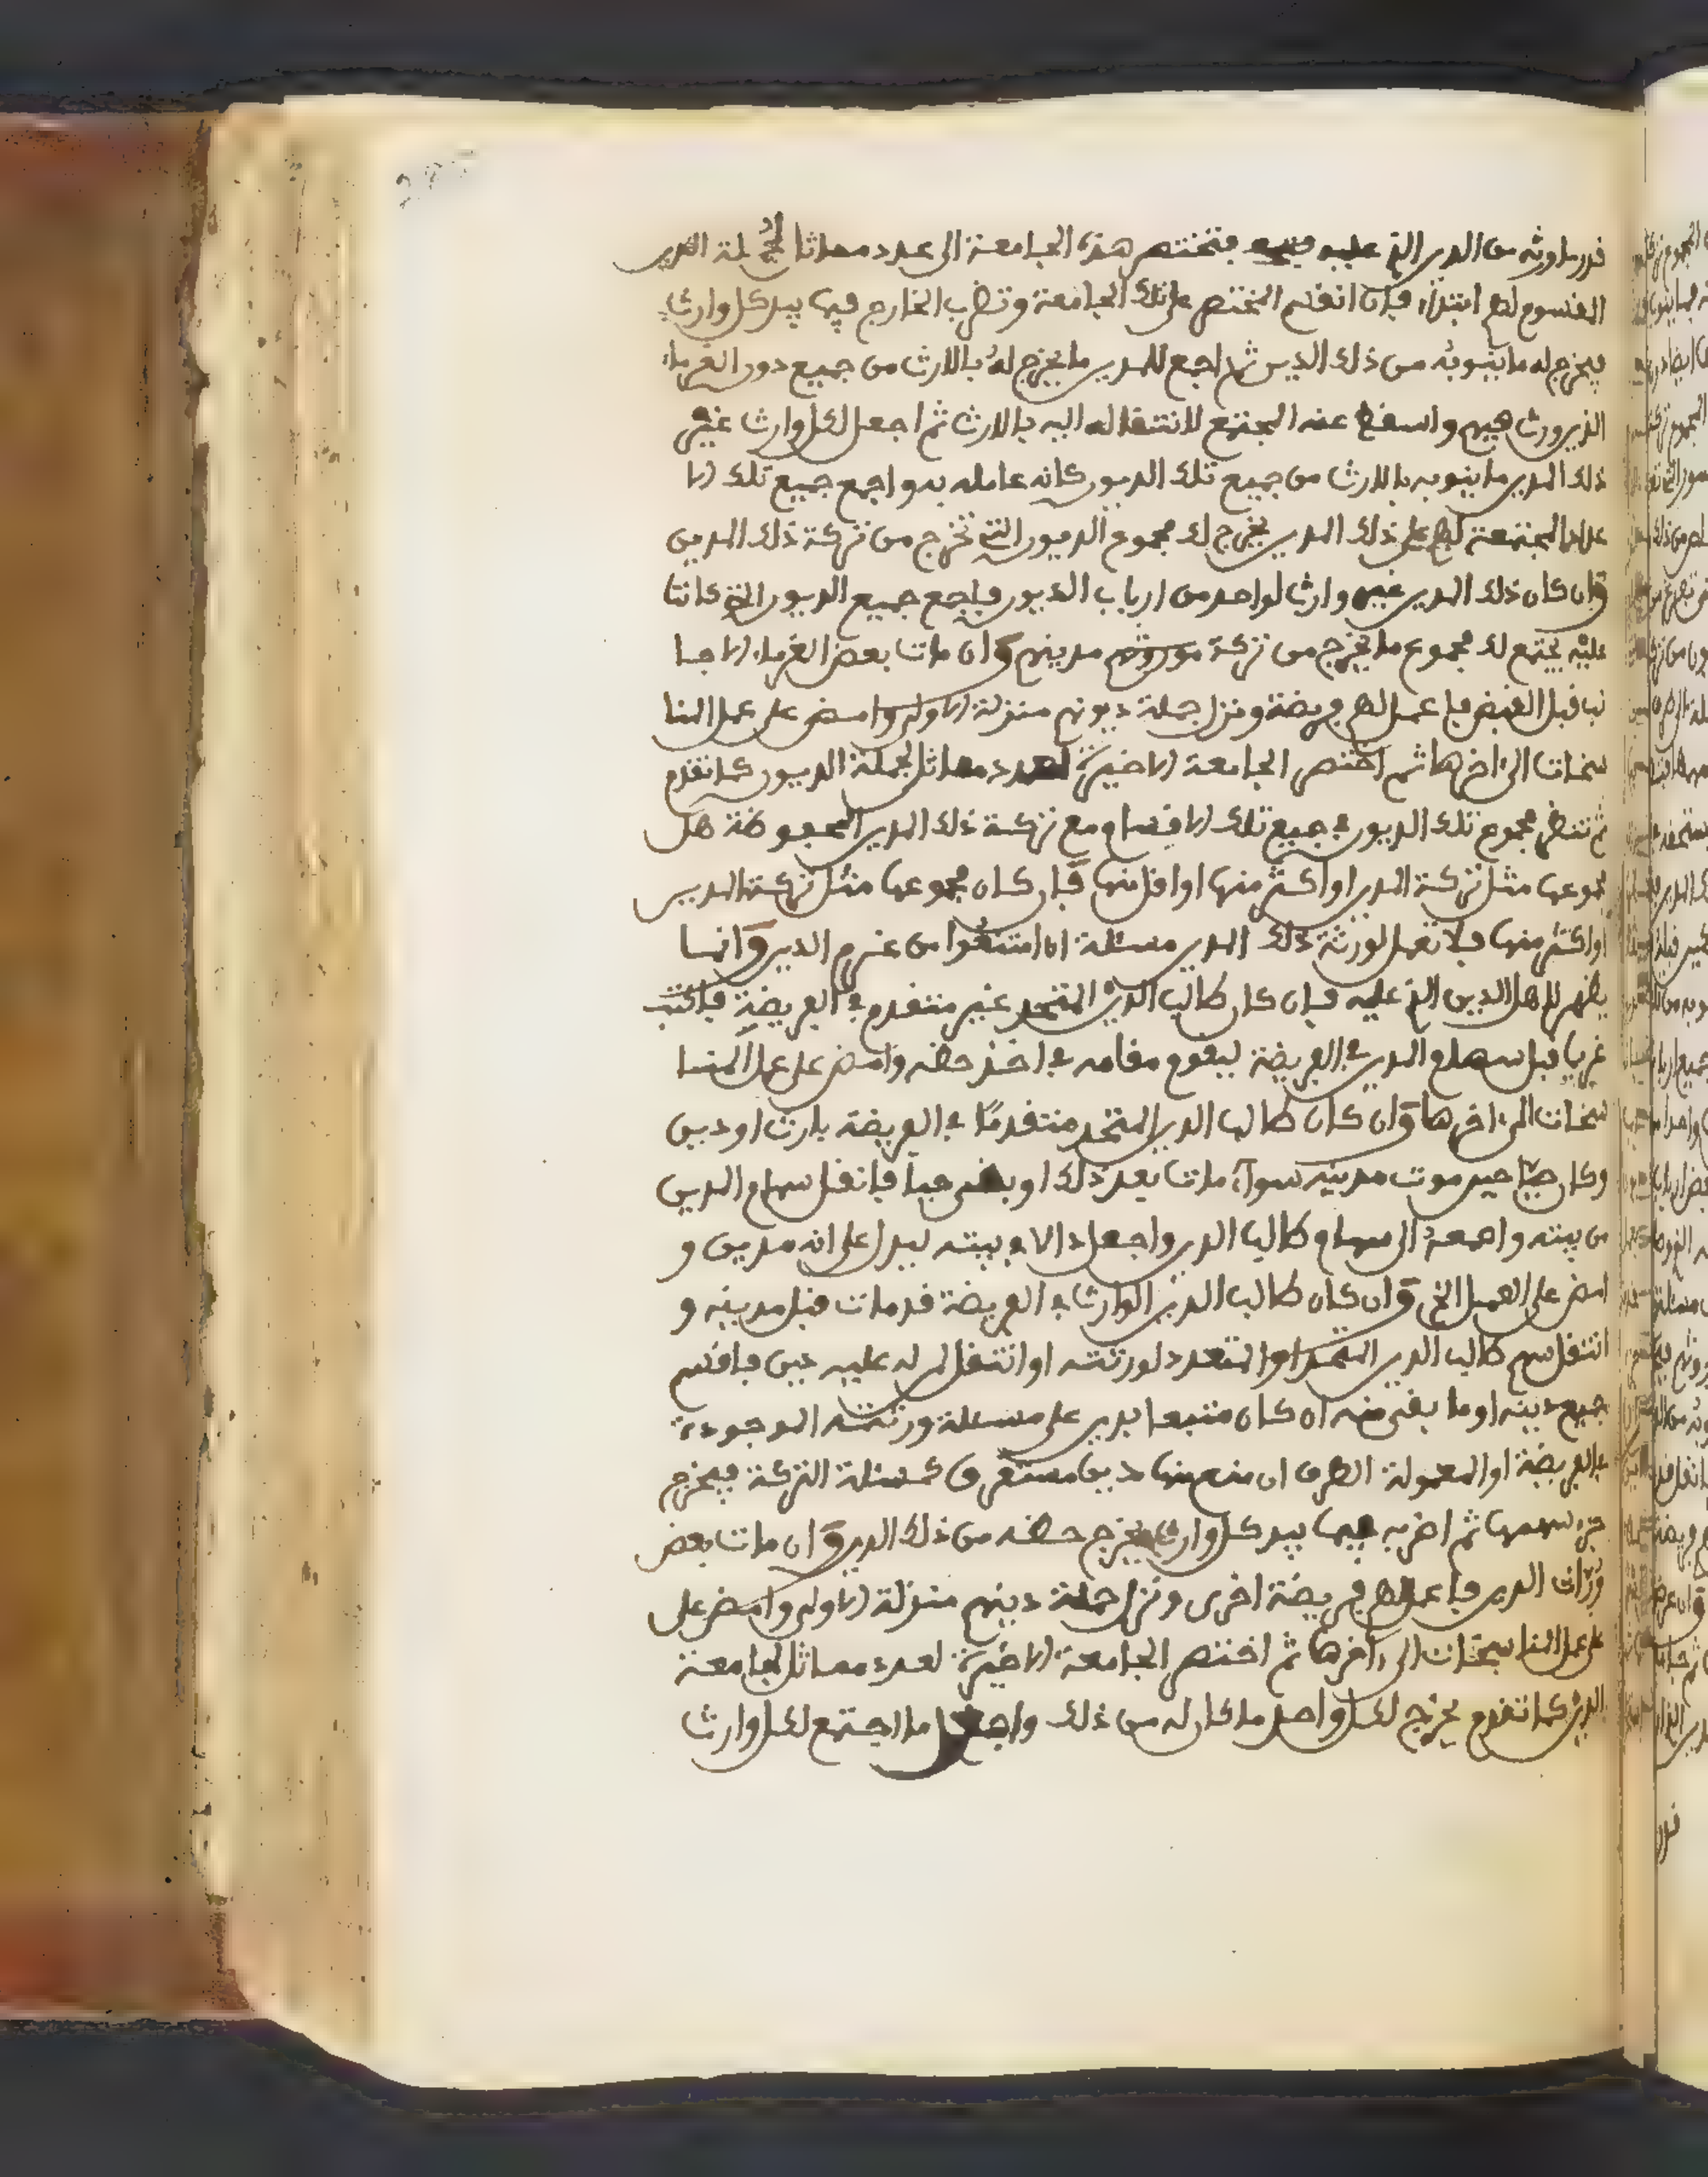 قدر ما ورثه من الدين الذي عليه فتختصر هذه الجامعة الى عدد مماثل لجملة الدين
المقسوم لهم ابتداء فإن انقسم المختصر على تلك الجامعة وتضرب الخارج فيما بيد كل وارث
فيخرج له ما ينوبه من ذلك الدين ثم اجمع للمدين ما يخرج له بالارث من جميع دور الغرماء
الذي ورث فيهم واسقط عنه المجتمع لانتقاله اليه بالارث ثم اجعل لكل وارث غير
ذلك المدين ما ينوبه بالارث من جميع تلك الديون كانه عامله به واجمع جميع تلك الا
عداد المجتمعة لهم على ذلك المدين يخرج لك مجموع الديون التي تخرج من تركة ذلك المدين
وان كان ذلك المدين غير وارث لواحد من ارباب الديون فاجمع جميع الديون التي كانت
عليه يجتمع لك مجموع ما يخرج من تركة موروثهم مدينهم وان مات بعض الغرماء الاجا
نب قبل القبض فاعمل لهم فريضة ونزل جملة ديونهم منزلة الاولى وامض على عمل المنا
سخات الى اخرها ثم اختصر الجامعة الاخيرة لعدد مماثل لجملة الديون كما تقدم
ثم تنظر مجموع تلك الديون في جميع تلك الاقسام مع تركة ذلك المدين المحفوظة هل
مجموعها مثل تركة المدين او اكثر منها او اقل منها فإن كان مجموعها مثل تركة المدين
او اكثر منها فلا تعمل لورثة ذلك المدين مسئلة ان امتنعوا من غرم الدين وانما
يظهر لاهل الدين الذي عليه فإن كان طالب الدين المتحد غير متقدم في الفريضة فاكتب
غريبا قبل سهام المدين في الفريضة ليقوم مقامه في اخذ حظه وامض على عمل المنا
سخات الى اخرها وان كان طالب الدين المتحد متقدمًا في الفريضة بارث او دين
وكان حيّا حين موت مدينه سواء مات بعد ذلك او بقي حيا فانقل سهام الدين
من بيته واجمعه الى سهام طالب الدين واجعل دالا في بيته ليدل على انه مدين و
امض على العمل الخ وان كان طالب الدين الوارث في الفريضة قد مات قبل مدينه و
انتقل سهم طالب الدين المتحد او المتعدد لورثته او انتقل لمن له عليه دين فاقسم
جميع دينه او ما بقي منه ان كان متبعا بدين على مسئلة ورثته الموجودة
في الفريضة او المعمولة الطرف ان منع منها دين مستغرق كمسئلة التركة فيخرج
جزء سهمها ثم اضربه فيما بيد كل وارث يخرج حظه من ذلك الدين وان مات بعض
ورّاث الدين فاعمل لهم فريضة اخرى ونزل جملة دينهم منزلة الاولى وامض على
على عمل المناسخات الى اخرها ثم اختصر الجامعة الاخيرة لعدد مماثل لجامعة
الدين كما تقدم يخرج لكل واحد ما كان له من ذلك واجعل ما اجتمع لكل وارث